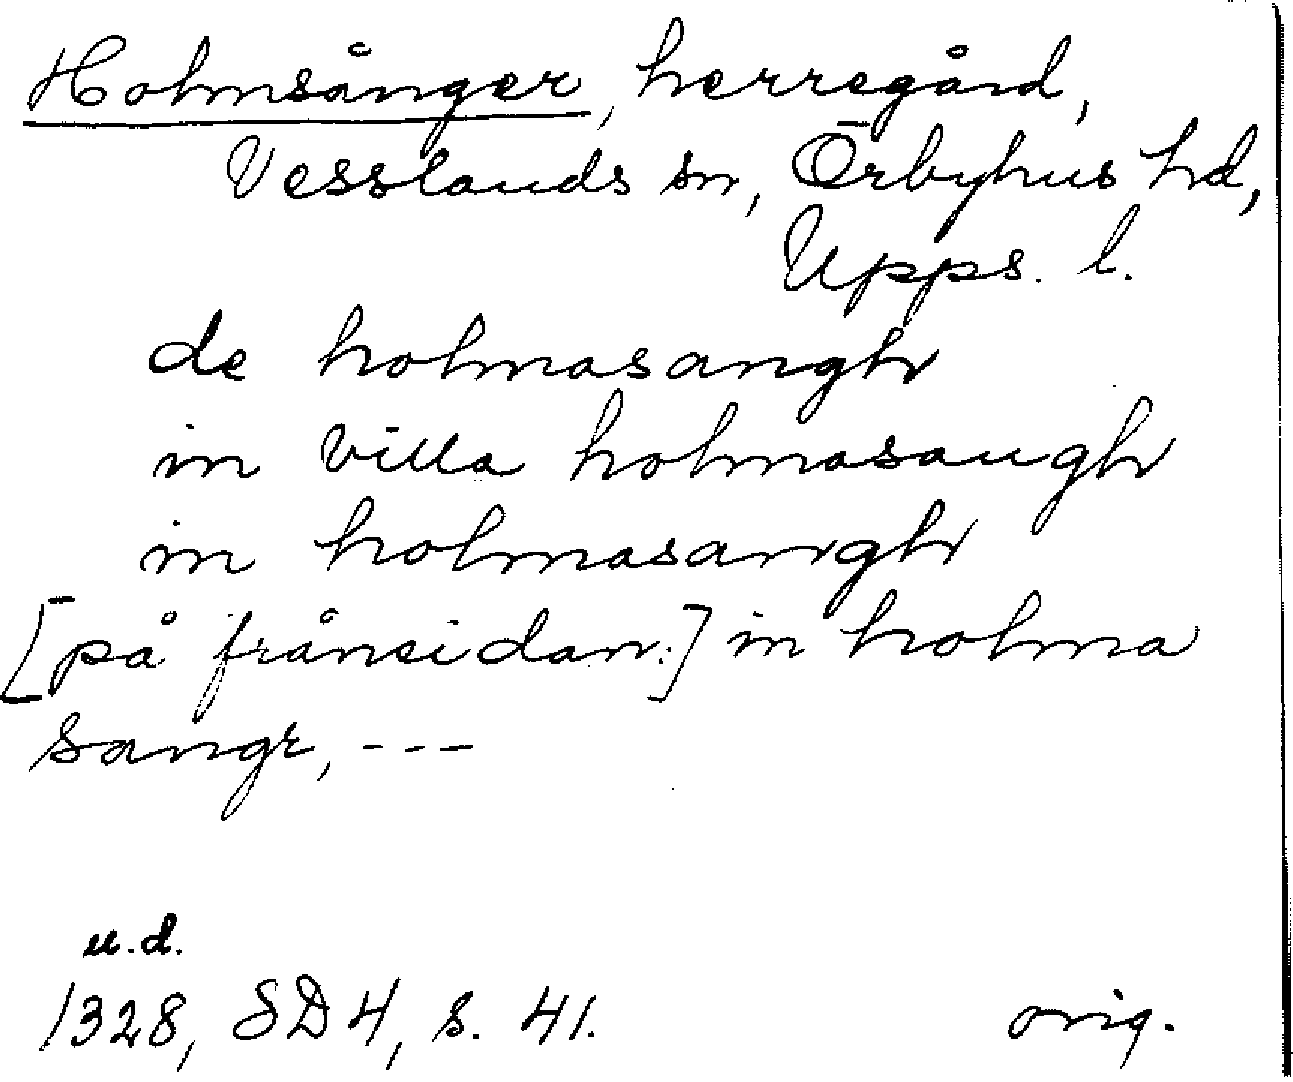 Holmsånger, herregård,
Vesslands sn, Örbyhus hd,
Upps. l.
de holmasangh
in villa holmasangh
in holmasangh
[på frånsidan:] in holma
sangr, ---
u.d.
1328, SD 4, s. 41. orig.